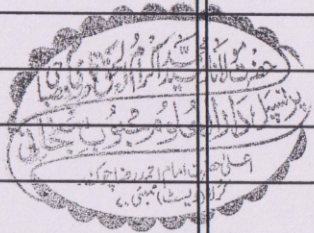 حضرت مولانا سید
پرنسپل دارالعلوم محبوب سبحانی
اعلیٰ حضرت امام احمد رضا چوک،
کرلا (ویسٹ) ممبئی ۷۰